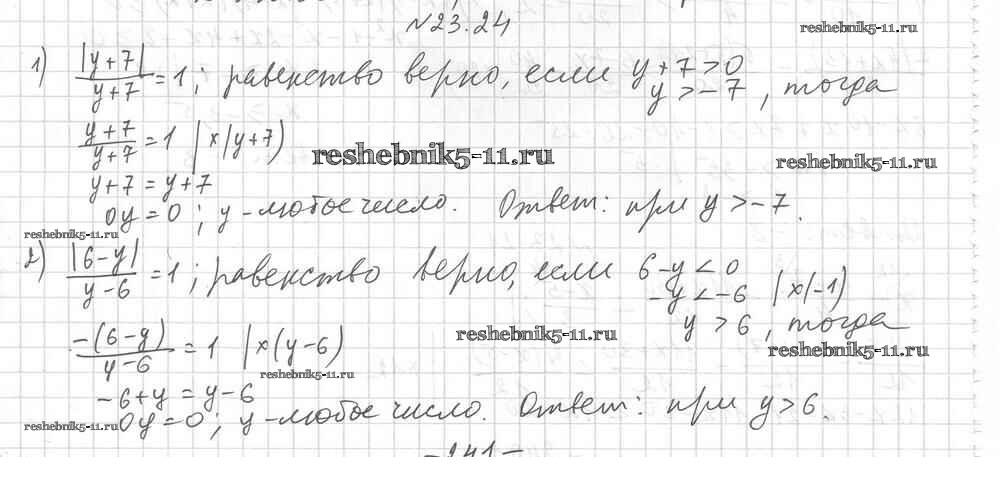 №23.24
reshebnik5-11.ru
1) |y+7| / y+7 = 1; равенство верно, если y+7>0
y>-7, тогда
y+7 / y+7 = 1 | x(y+7)
reshebnik5-11.ru
reshebnik5-11.ru
y+7 = y+7
0y=0; y-любое число. Ответ: при y>-7.
reshebnik5-11.ru
2) |6-y| / y-6 = 1; равенство верно, если 6-y<0
-y<-6 | x(-1)
y>6, тогда
-(6-y) / y-6 = 1 | x(y-6)
reshebnik5-11.ru
reshebnik5-11.ru
reshebnik5-11.ru
-6+y = y-6
0y=0; y-любое число. Ответ: при y>6.
reshebnik5-11.ru
-241-